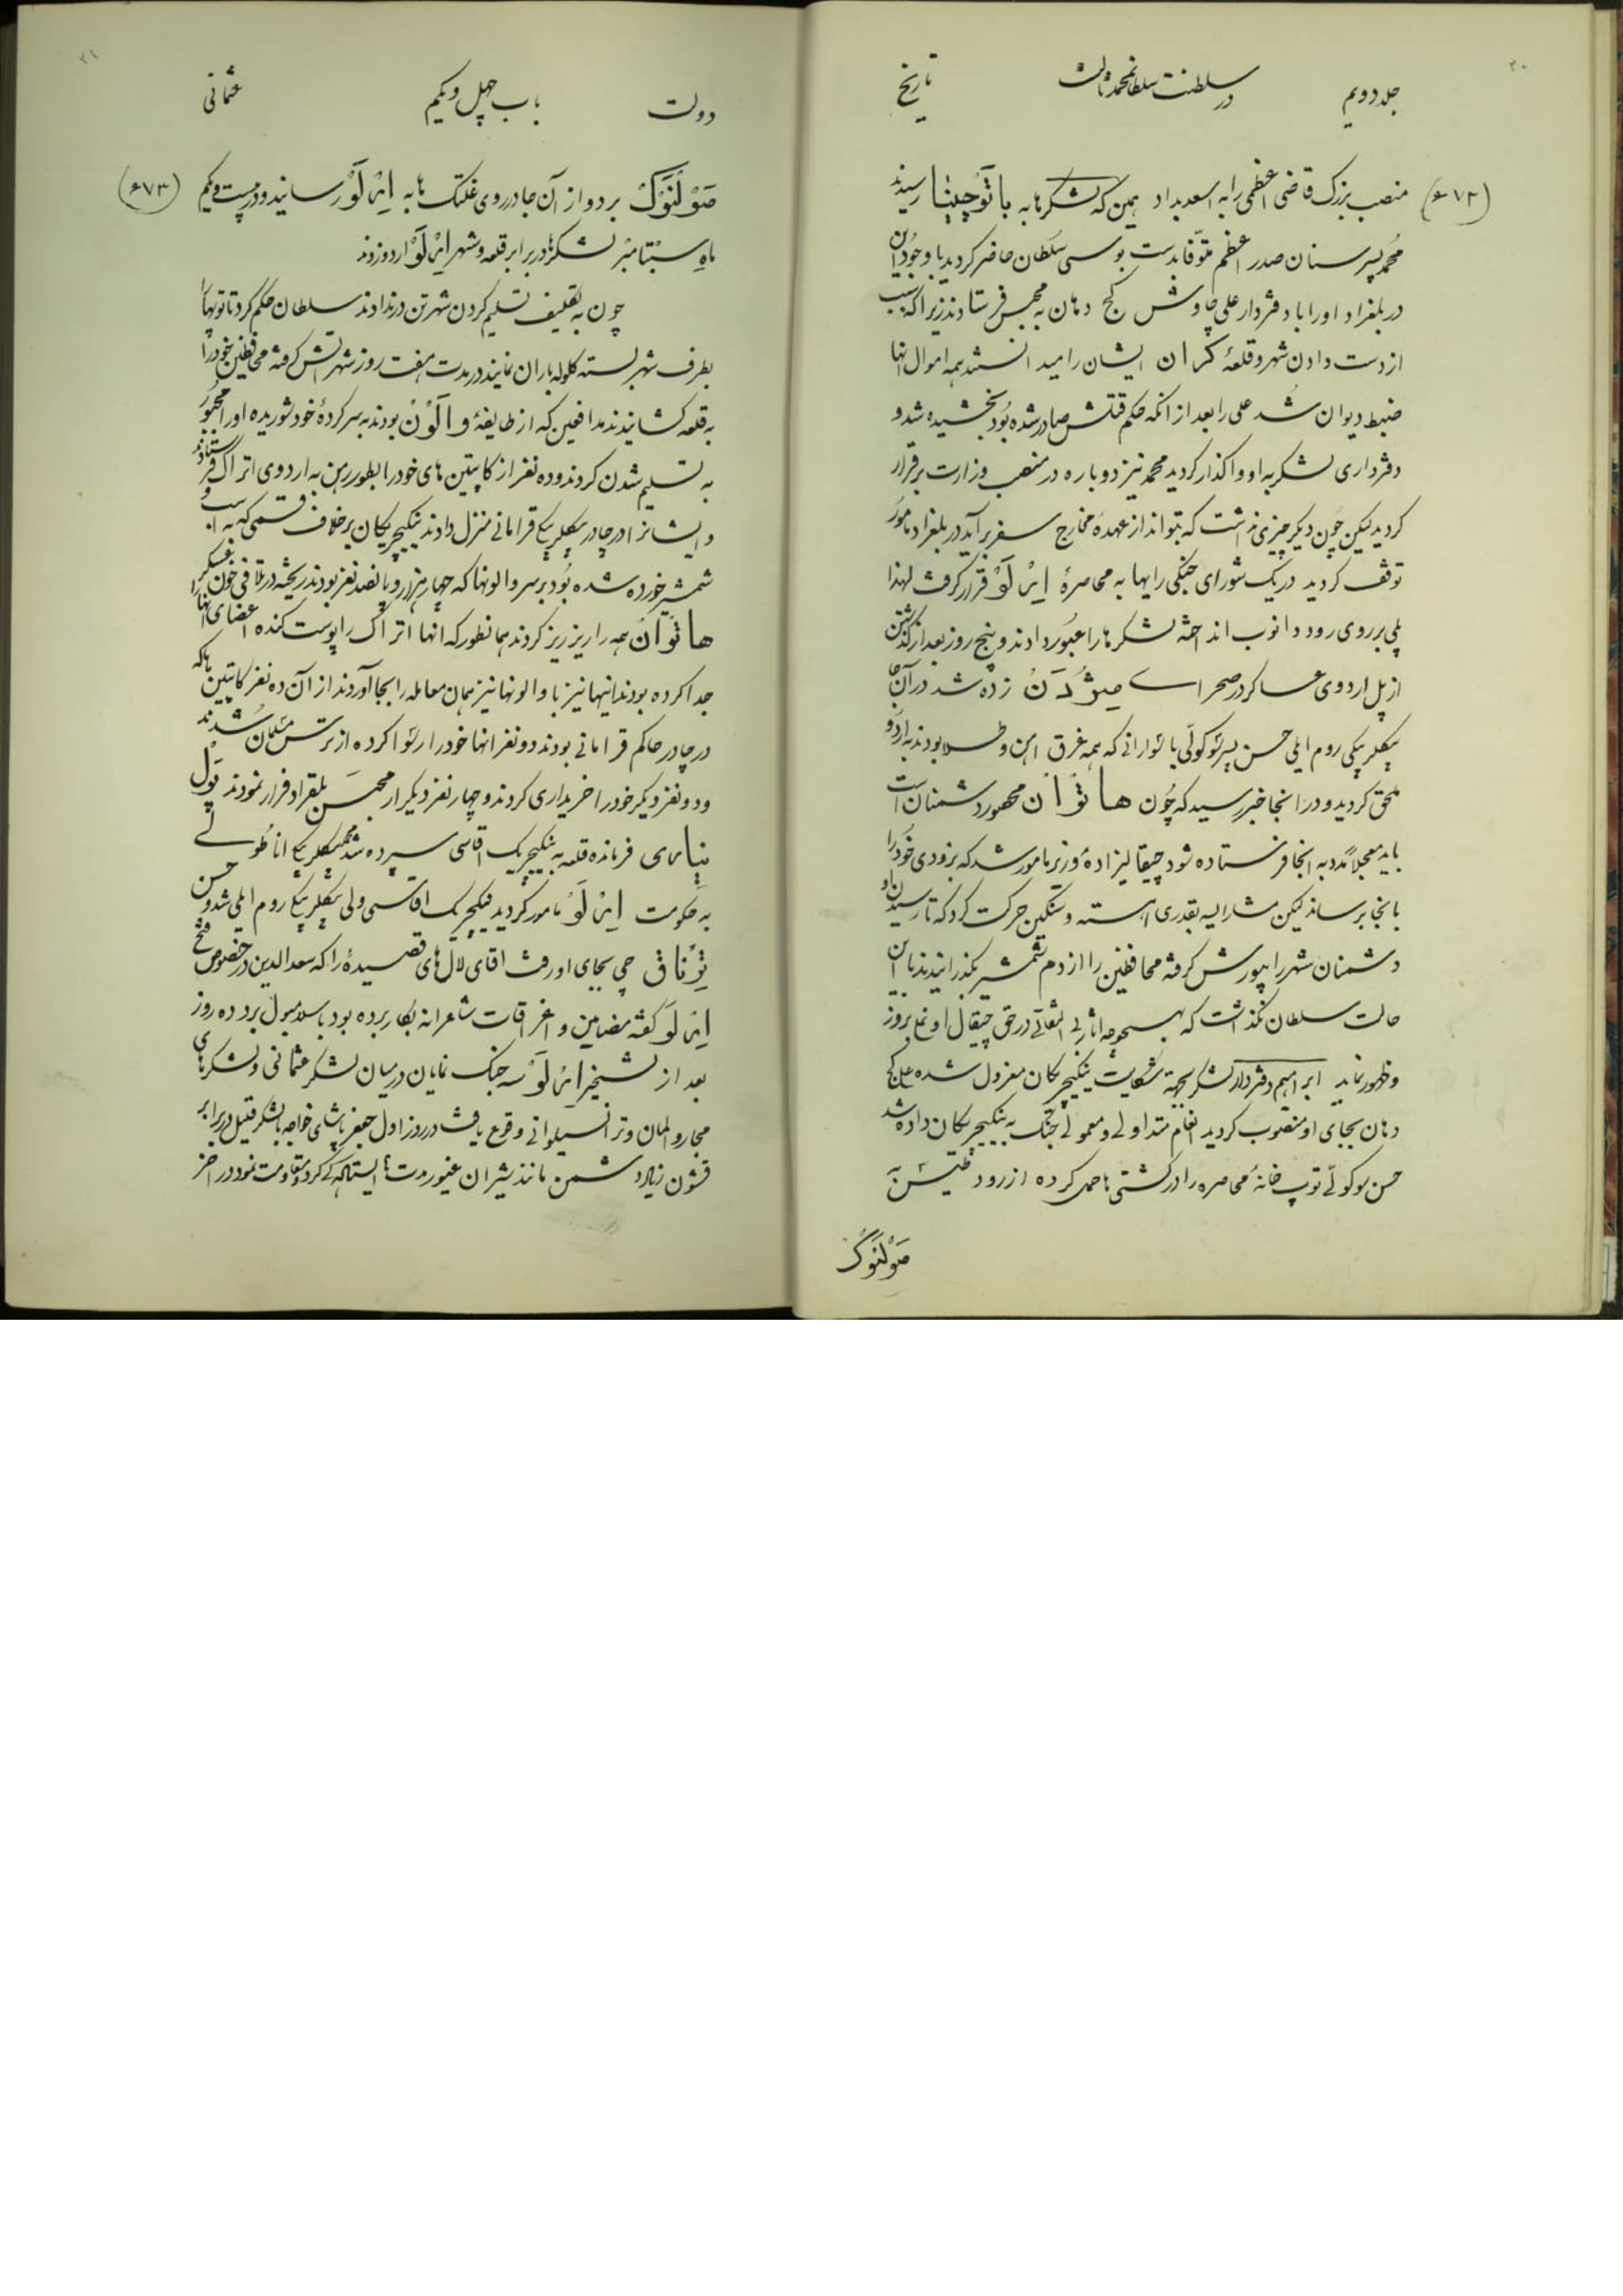 ۲۰
جلد دویم
در سلطنت سلطانمحمد ثالث
تاریخ
(۶۷۲)
منصب بزرگ قاضی اعظمی را به اسعد بداد همین که لشکرها به باتوچینا رسیدند
محمد پسر سنان صدر اعظم متوفا بدست بوسی سلطان حاضر گردید با وجود این
در بلغراد او را با دفتردار علی چاوش کج دهان به محبس فرستادند زیرا که سبب
از دست دادن شهر و قلعهٔ کران ایشان را میدانستند همه اموال انها
ضبط دیوان شد علی را بعد از انکه حکم قتلش صادر شده بود بخشیده شد و
دفترداری لشکر به او واگذار گردید محمد نیز دوباره در منصب وزارت برقرار
گردید لیکن چون دیگر چیزی نداشت که بتواند از عهدهٔ مخارج سفر برآید در بلغراد مامور
توقف گردید در یک شورای جنگی رایها به محاصرهٔ ایرلو قرار گرفت لهذا
پلی بر روی رود دانوب انداخته لشکرها را عبور دادند و پنج روز بعد از گذشتن
از پل اردوی عساکر در صحرای میژدن زده شد در آن جا
بیکلربیکی روم ایلی حسن پسر سوکولّی با سوارانی که همه غرق اهن و طلا بودند به اردو
ملحق گردید و در انجا خبر رسید که چون هاتوان محصور دشمنان است
باید معجلاً مدد به انجا فرستاده شود چیقالیزادهٔ وزیر مامور شد که بزودی خود را
بانجا برساند لیکن مشارالیه بقدری اهسته و سنگین حرکت کرد که تا رسیدن او
دشمنان شهر را بیورش گرفته محافظین را از دم شمشیر بگذرانیدند با این
حالت سلطان نگذاشت که بهیچوجه اثار بی التفاتی در حق چیقال اوغلی بروز
و ظهور نماید ابراهیم دفتردار لشکر بجهة شکایت ینکیچریکان معزول شده علی کج
دهان بجای او منصوب گردید انعام متداولی و معمولی جنگ به ینکیچریکان داده شد
حسن سوکولّی توپ خانهٔ محاصره را در کشتی ها حمل کرده از رود طیس به
صولنوک
۲۱
دولت
باب چهل و یکم
عثمانی
(۶۷۳)
صولنوک برد و از آن جا در روی غلتک ها به ایرلو رسانید و در بیست و یکم
ماه سبتامبر لشکرها در برابر قلعه و شهر ایرلو اردو زدند
چون به تکلیف تسلیم کردن شهر تن در ندادند سلطان حکم کرد تا توپها را
بطرف شهر بسته گلوله باران نمایند در مدت هفت روز شهر اتش گرفته محافظین خود را
به قلعه کشانیدند مدافعین که از طایفهٔ والون بودند به سرکردهٔ خود شوریده او را مجبور
به تسلیم شدن کردند و ده نفر از کاپیتین های خود را بطور رهن به اردوی اتراک فرستادند
و ایشانرا در چادر بیکلربیکی قرامانی منزل دادند ینکیچریکان بر خلاف قسمی که به راست و
شمشیر خورده شده بود بر سر والونها که چهار هزار و پانصد نفر بودند ریخته در تلافی خون عسکر
هاتوان همه را ریز ریز کردند همانطور که انها اتراک را پوست کنده اعضای انها را
جدا کرده بودند اینها نیز با والونها نیز همان معامله را بجا آوردند از آن ده نفر کاپیتین ها که
در چادر حاکم قرامانی بودند دو نفر انها خود را رسوا کرده از ترس مسلمان شدند
و دو نفر دیگر خود را خریداری کردند و چهار نفر دیگر از محبس بلغراد فرار نمودند پول
فرمانده قلعه به ینکیچریک اقاسی سپرده شد محمد بیکلربیکی اناطولی
به حکومت ایرلو مامور گردید ینکیچریک اقاسی ولی بیکلربیکی روم ایلی شد و حسن
تِرناق چی بجای او رفت اقای لال های قصیدهٔ را که سعدالدین در خصوص فتح
ایرلو گفته مضامین و اغراقات شاعرانه بکار برده بود باسلامبول برد ده روز
بعد از تسخیر ایرلو سه جنگ نمایان در میان لشکر عثمانی و لشکرهای
مجار و المان و ترانسیلوانی وقوع یافت در روز اول جعفر پاشای خواجه با لشکر قلیل در برابر
قشون زیاد دشمن مانند شیران غیور مدت ها ایستادگی کرد و مقاومت نمود در اخر